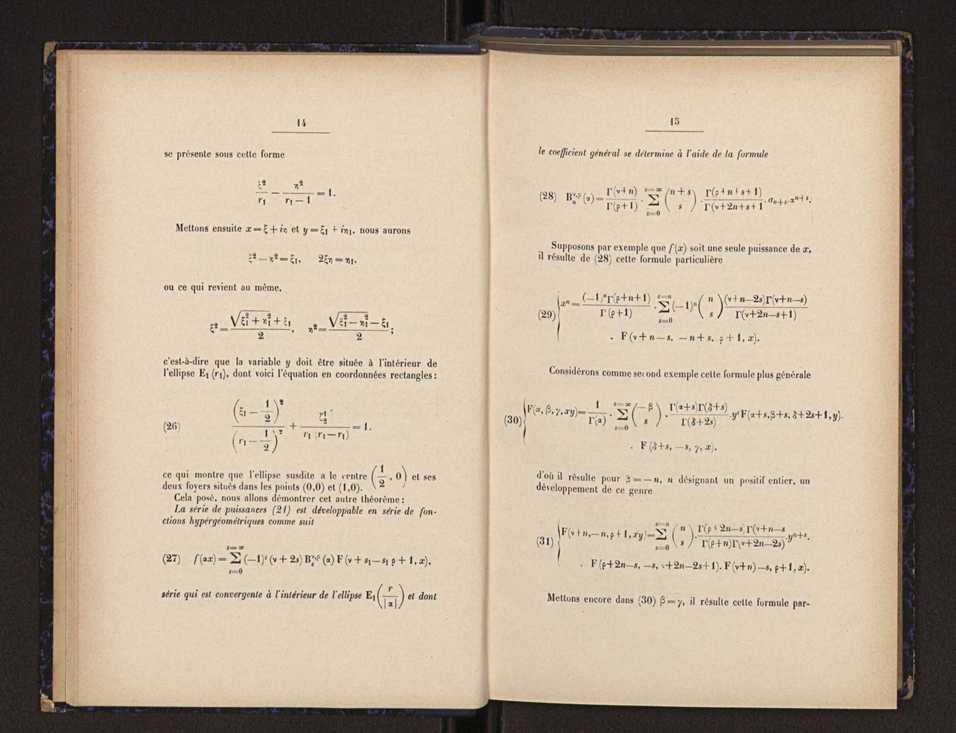 14
se présente sous cette forme
ξ²/r₁ − η²/(r₁ − 1) = 1.
Mettons ensuite x = ξ + iη et y = ξ₁ + iη₁, nous aurons
ξ² − η² = ξ₁, 2ξη = η₁,
ou ce qui revient au même,
ξ² = (√(ξ₁² + η₁²) + ξ₁)/2, η² = (√(ξ₁² − η₁²) − ξ₁)/2;
c'est-à-dire que la variable y doit être située à l'intérieur de
l'ellipse E₁ (r₁), dont voici l'équation en coordonnées rectangles :
(26) (ξ₁ − 1/2)²/(r₁ − 1/2)² + η₁²/(r₁ (r₁ − r₁)) = 1.
ce qui montre que l'ellipse susdite a le centre (1/2, 0) et ses
deux foyers situés dans les points (0,0) et (1,0).
Cela posé, nous allons démontrer cet autre théorème :
La série de puissances (21) est développable en série de fon-
ctions hypérgéométriques comme suit
(27) f(αx) = Σ_{s=0}^{s=∞} (−1)ˢ (ν + 2s) Bₛ^{ν,ρ} (α) F (ν + s₁ − s₁ ρ + 1, x),
série qui est convergente à l'intérieur de l'ellipse E₁(r/|α|) et dont
15
le coefficient général se détermine à l'aide de la formule
(28) Bₙ^{ν,ρ} (α) = Γ(ν+n)/Γ(ρ+1) . Σ_{s=0}^{s=∞} (n + s / s) . Γ(ρ+n+s+1)/Γ(ν+2n+s+1 . aₙ₊ₛ.xⁿ⁺ˢ.
Supposons par exemple que f (x) soit une seule puissance de x,
il résulte de (28) cette formule particulière
(29) { xⁿ = (−1)ⁿΓ(ρ+n+1)/Γ (ρ+1) . Σ_{s=0}^{s=n} (−1)ⁿ (n / s) (ν+n−2s)Γ(ν+n−s)/Γ(ν+2n−s+1)
. F (ν + n − s, − n + s, ρ + 1, x).
Considérons comme second exemple cette formule plus générale
(30) { F(α, β, γ, xy) = 1/Γ(α) . Σ_{s=0}^{s=∞} (−β / s) . Γ(α+s)Γ(δ+s)/Γ(δ+2s) . yˢ F(α+s, β+s, δ+2s+1, y).
. F (δ+s, −s, γ, x),
d'où il résulte pour β = − n, n désignant un positif entier, un
développement de ce genre
(31) { F(ν+n, −n, ρ+1, xy) = Σ_{s=0}^{s=n} (n / s) . Γ(ρ+2n−s) Γ(ν+n−s/Γ(ρ+n)Γ(ν+2n−2s) . yⁿ⁺ˢ.
. F (ρ+2n−s, −s, ν+2n−2s+1). F (ν+n) −s, ρ+1, x).
Mettons encore dans (30) β = γ, il résulte cette formule par-